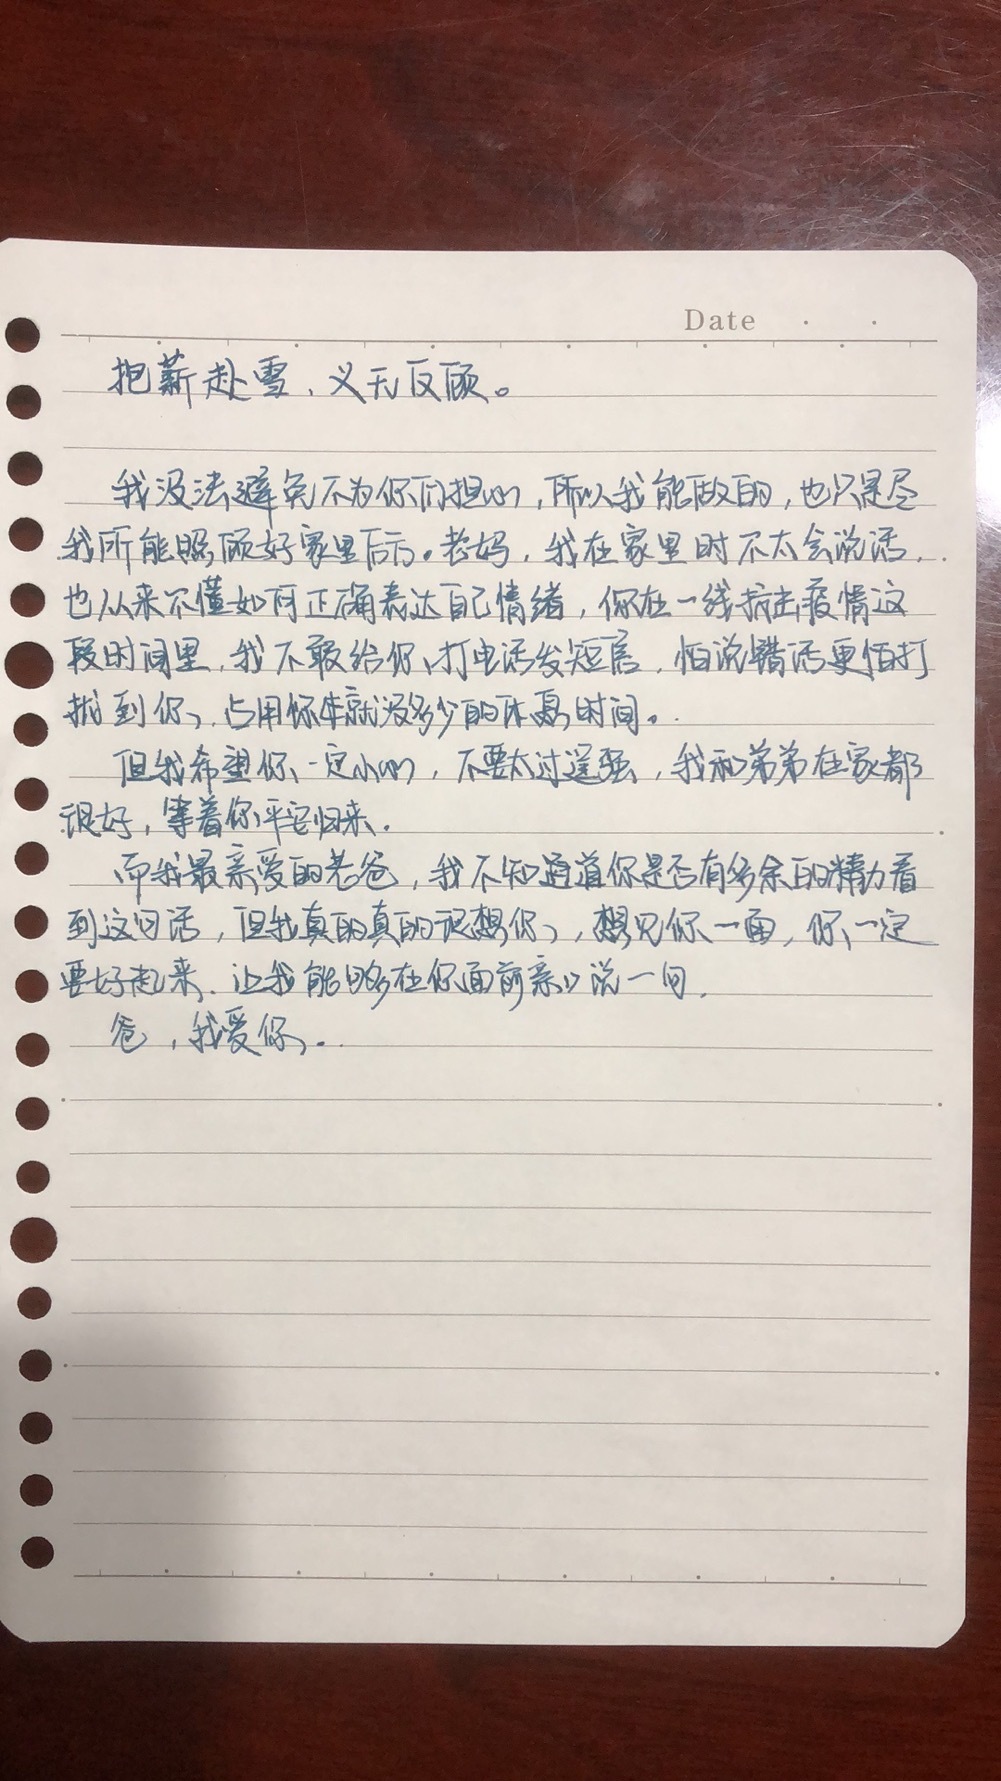 Date
抱薪赴雪、义无反顾。
我没法避免不为你们担心，所以我能做的，也只是尽
我所能照顾好家里后方。老妈，我在家里时不太会说话，
也从来不懂如何正确表达自己情绪，你在一线抗击疫情这
段时间里，我不敢给你打电话发短信，怕说错话更怕打
扰到你，占用你本就没多少的休息时间。
但我希望你一定小心，不要太过逞强，我和弟弟在家都
很好，等着你平安归来。
而我最亲爱的老爸，我不知道你是否有多余的精力看
到这句话，但我真的真的很想你，想见你一面，你一定
要好起来，让我能够在你面前亲口说一句，
爸，我爱你。